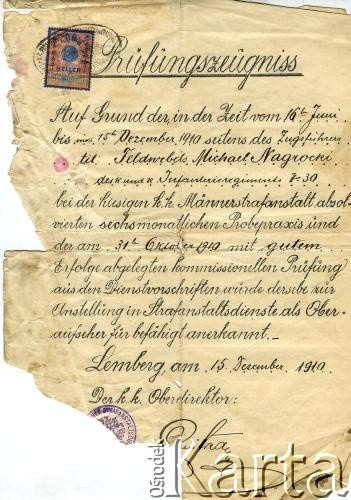 Prüfungszeugniss
HELLER
Auf Grund der, in der Zeit vom 16ten Juni
bis 15ten Dezember 1910 seitens des Zugsführers
tit. Feldwebels Michael Nagrocki
des k und k Infanterieregiments № 30
bei der hiesigen k.k. Männerstrafanstalt absol-
vierten sechsmonatlichen Probepraxis und
der am 31ten Oktober 1910 mit gutem
Erfolge abgelegten kommissionellen Prüfung
aus den Dienstvorschriften wurde derselbe zur
Anstellung in Strafanstaltsdienste als Ober-
aufseher für befähigt anerkannt.
Lemberg, am 15. Dezember 1910.
Der k.k. Oberdirektor:
Ośrodek
Karta